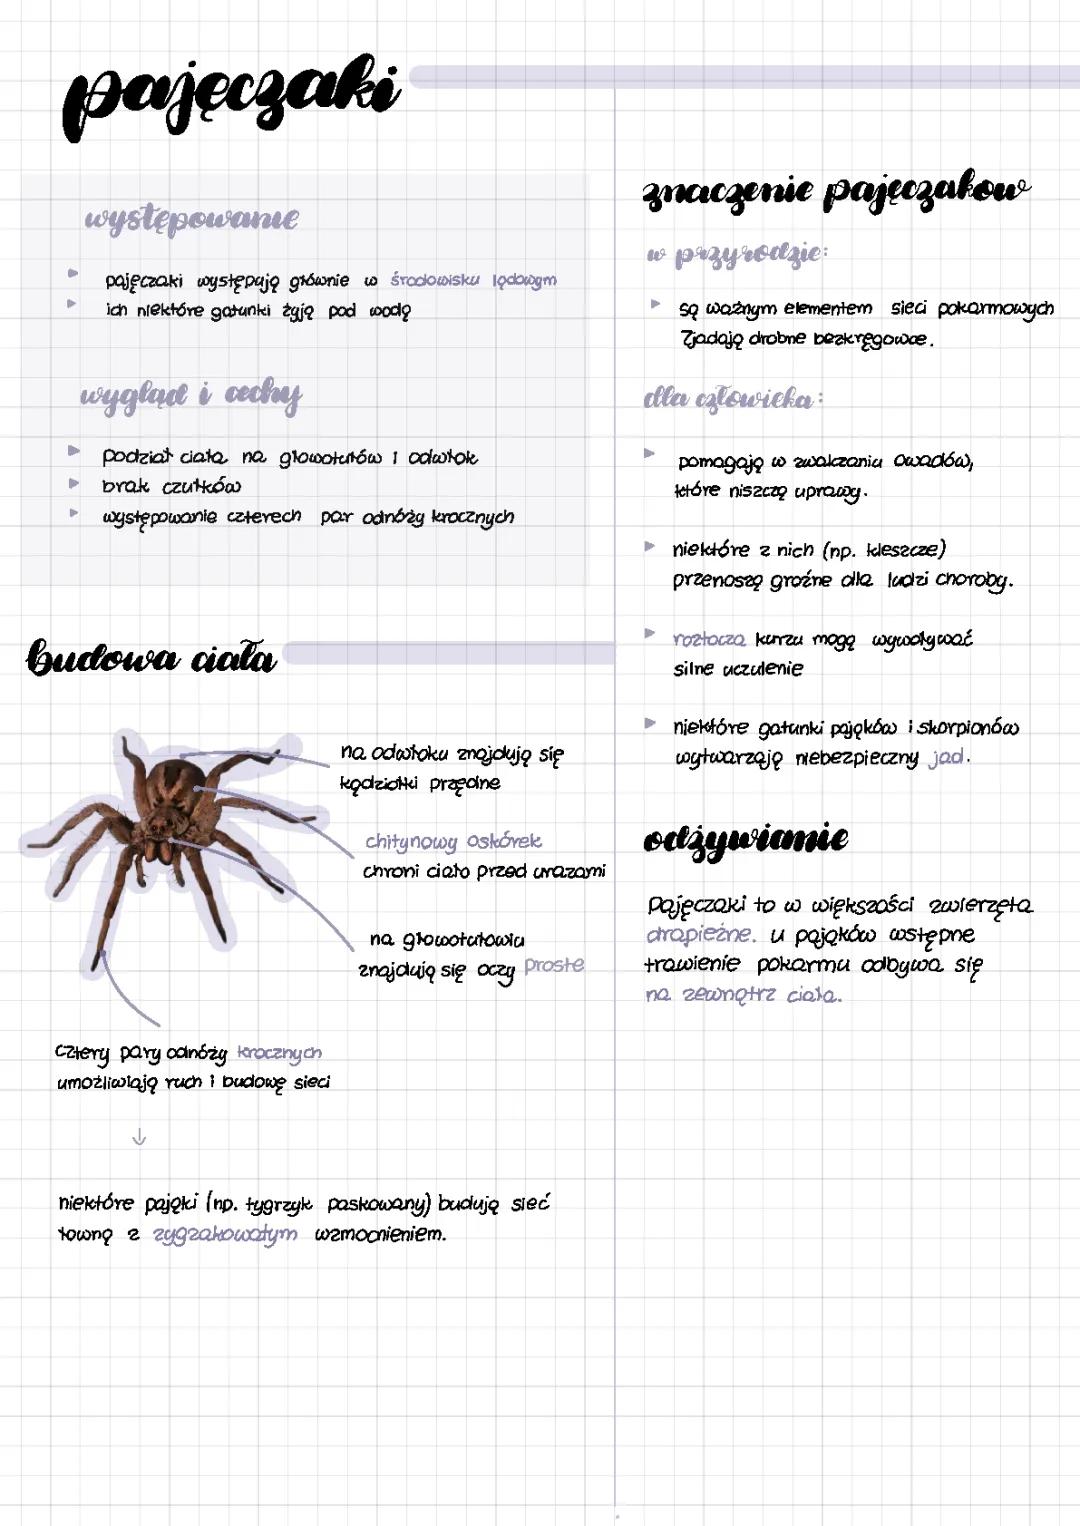 pajęczaki
występowanie
pajęczaki występują głównie w środowisku lądowym
ich niektóre gatunki żyją pod wodą
wygląd i cechy
podział ciała na głowotułów i odwłok
brak czułków
występowanie czterech par odnóży krocznych
budowa ciała
na odwłoku znajdują się
kądziołki przędne
chitynowy oskórek
chroni ciało przed urazami
na głowotułowiu
znajdują się oczy proste
cztery pary odnóży krocznych
umożliwiają ruch i budowę sieci
↓
niektóre pająki (np. tygrzyk paskowany) budują sieć
łowną z zygzakowatym wzmocnieniem.
znaczenie pajęczakow
w przyrodzie:
są ważnym elementem sieci pokarmowych
Zjadają drobne bezkręgowce.
dla człowieka:
pomagają w zwalczaniu owadów,
które niszczą uprawy.
niektóre z nich (np. kleszcze)
przenoszą groźne dla ludzi choroby.
roztocza kurzu mogą wywoływać
silne uczulenie
niektóre gatunki pająków i skorpionów
wytwarzają niebezpieczny jad.
odżywianie
Pajęczaki to w większości zwierzęta
drapieżne. u pająków wstępne
trawienie pokarmu odbywa się
na zewnątrz ciała.